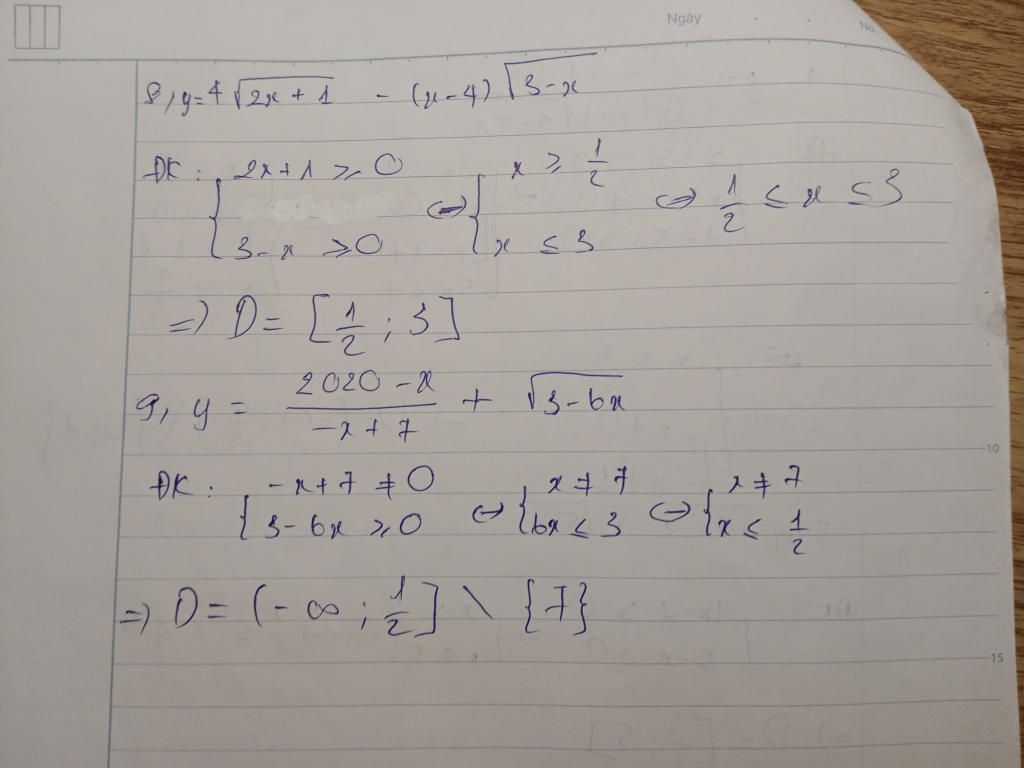 Ngày
No.
8, y = 4√(2x + 1) - (x - 4)√(3 - x)
ĐK: { 2x + 1 ≥ 0 ; 3 - x ≥ 0 ⇔ { x ≥ 1/2 ; x ≤ 3 ⇔ 1/2 ≤ x ≤ 3
=> D = [1/2 ; 3]
9, y = (2020 - x)/(-x + 7) + √(3 - 6x)
ĐK: { -x + 7 ≠ 0 ; 3 - 6x ≥ 0 ⇔ { x ≠ 7 ; 6x ≤ 3 ⇔ { x ≠ 7 ; x ≤ 1/2
=> D = (-∞ ; 1/2] \ {7}
10
15